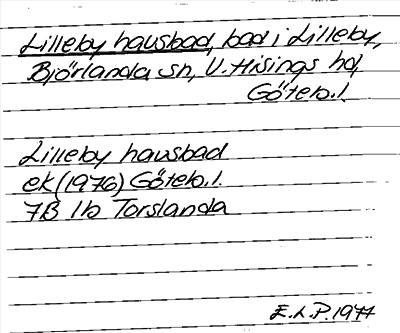 Lilleby hausbad, bad i Lilleby,
Björlanda sn, V. Hisings hd,
Göteb.l.
Lilleby hausbad
ek (1976) Göteb.l.
7B 1b Torslanda
E.L.P. 1977